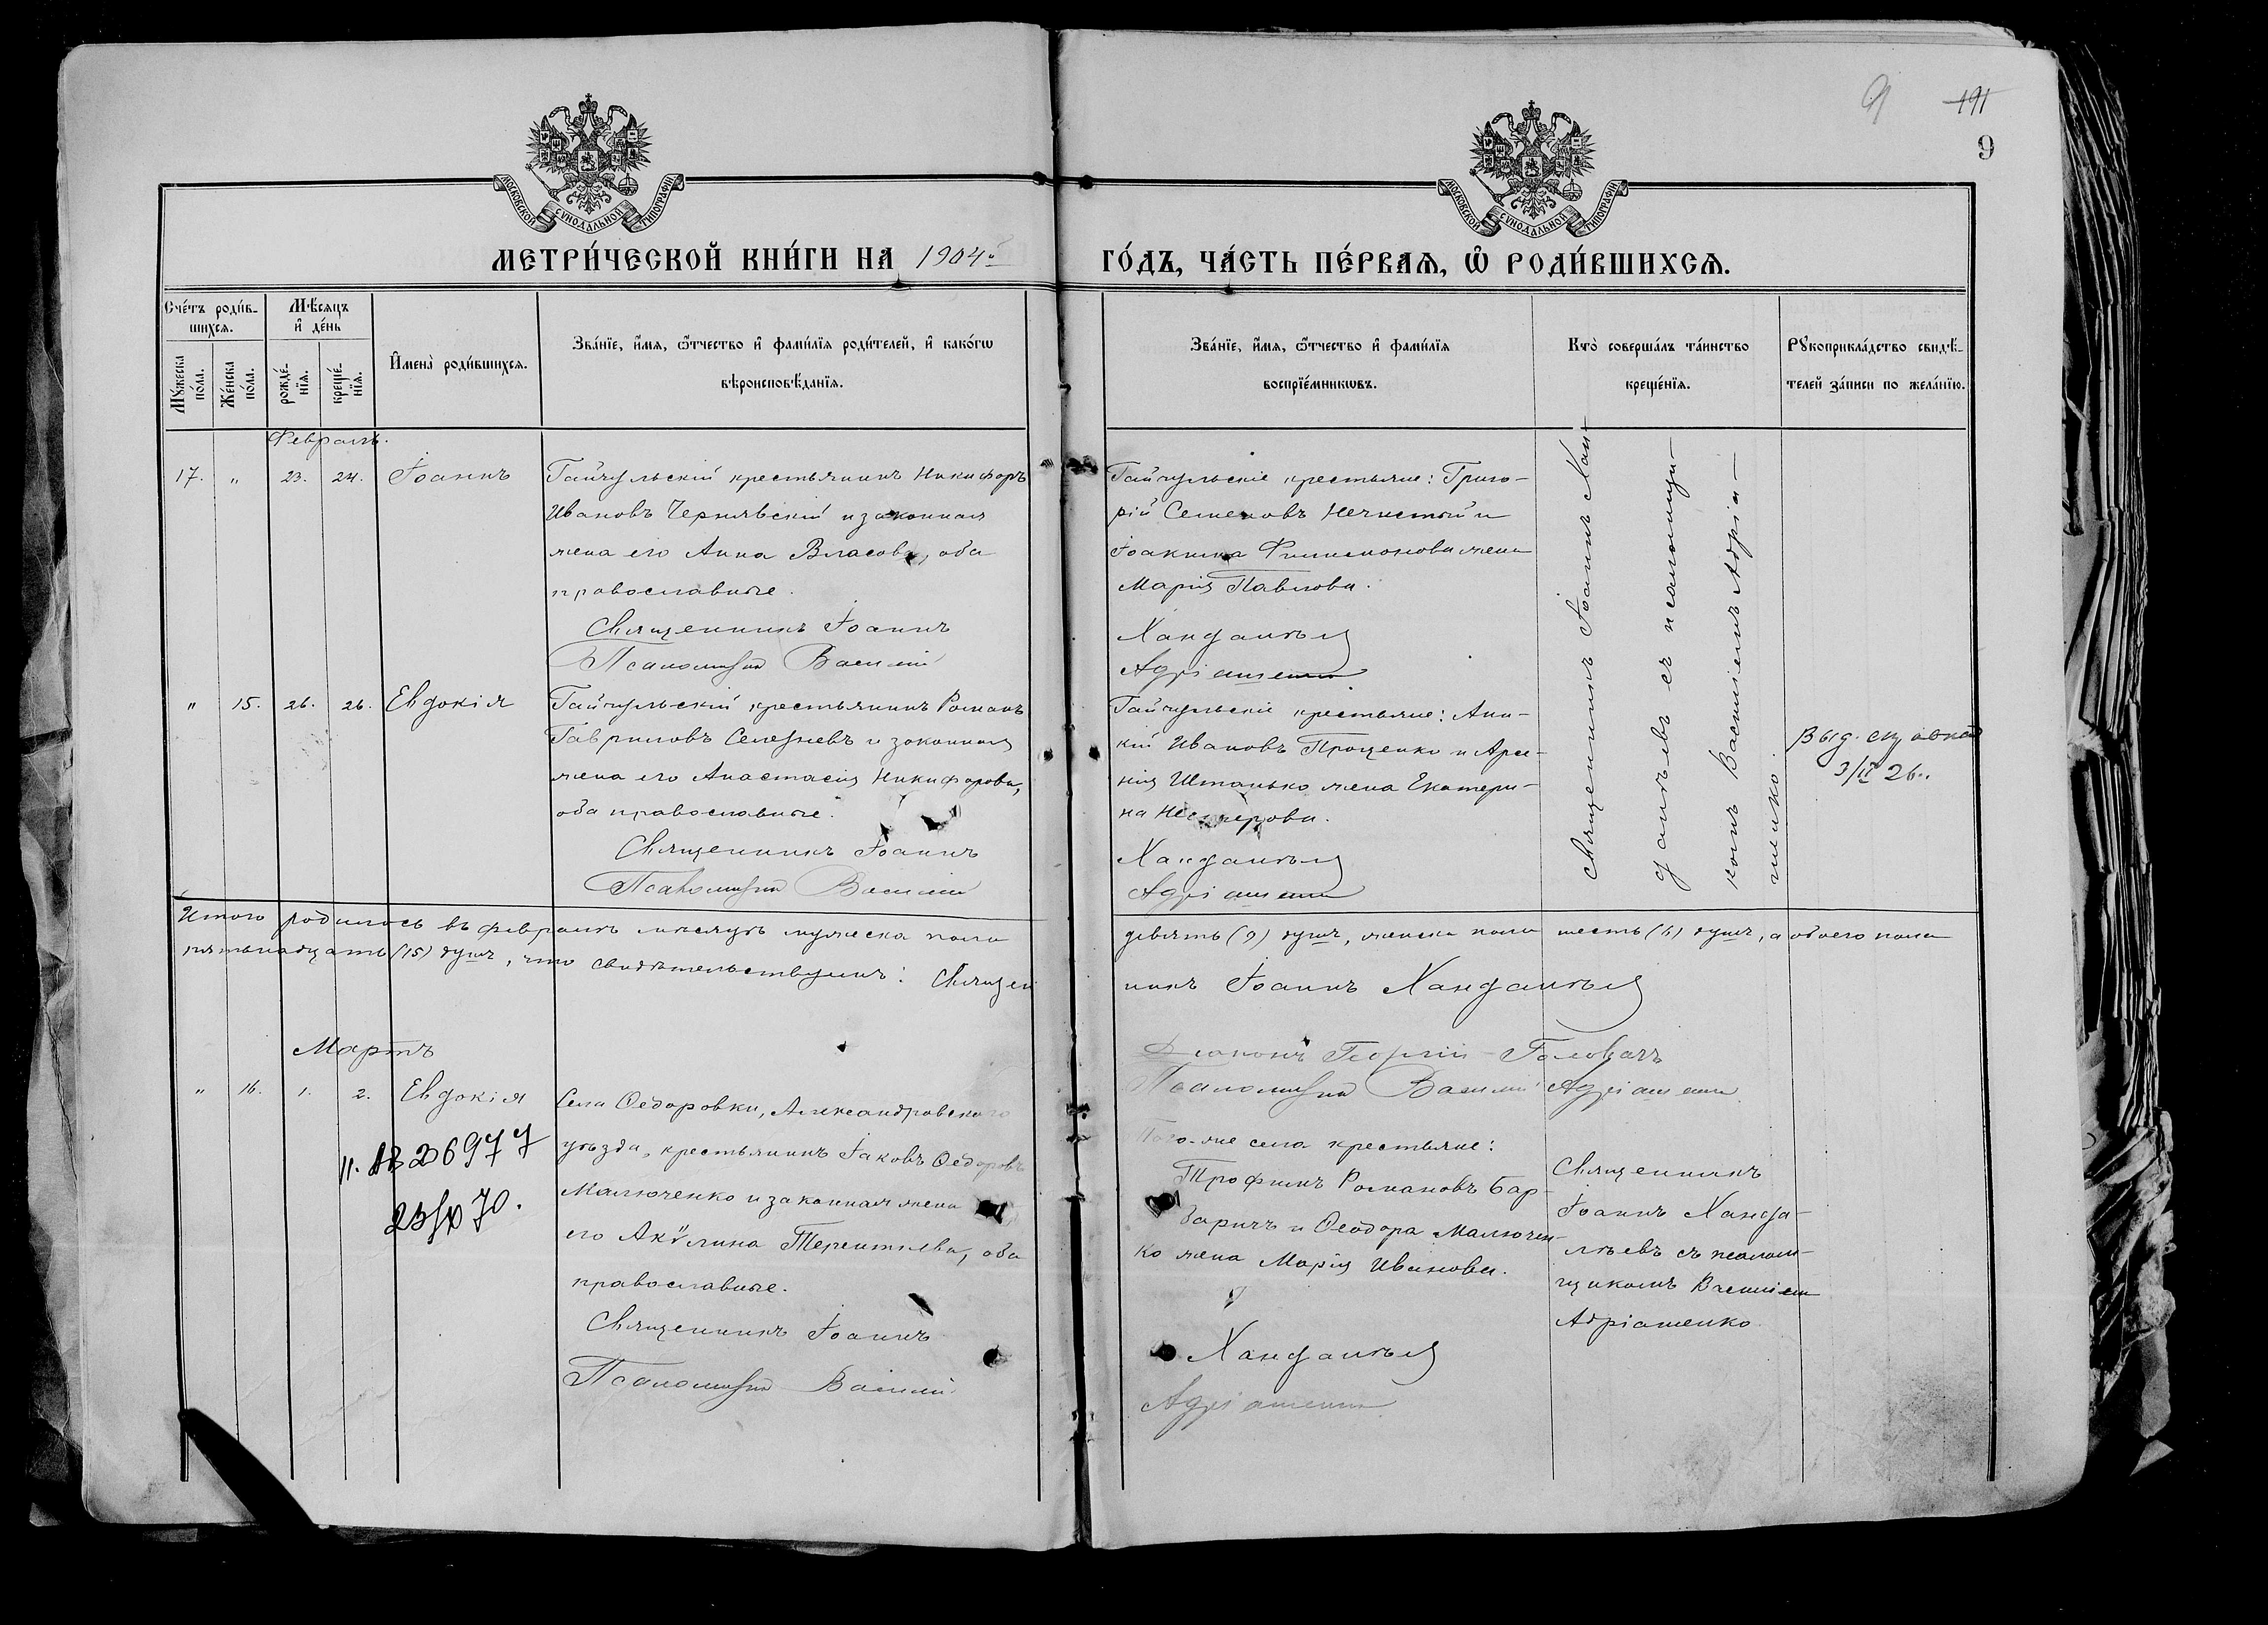 9 191
9
МОСКОВСКОЙ СѴНОДАЛЬНОЙ ТИПОГРАФІИ
МОСКОВСКОЙ СѴНОДАЛЬНОЙ ТИПОГРАФІИ
МЕТРИ́ЧЕСКОЙ КНИ́ГИ НА 1904й
ГО́ДЪ, ЧА́СТЬ ПЕ́РВАѦ, Ѽ РОДИ́ВШИХСѦ.
Сче́тъ роди́в-
шихсѧ.
Мꙋ́жеска
по́ла.
Же́нска
по́ла.
Мѣ́сѧцъ
и҆ де́нь
рожде́-
нїѧ.
креще́-
нїѧ.
И҆мена̀ роди́вшихсѧ.
Зва́нїе, и҆́мѧ, ѻ҆́тчество и҆ фами́лїѧ роди́телей, и҆ како́гѡ
вѣроисповѣ́данїѧ.
Зва́нїе, и҆́мѧ, ѻ҆́тчество и҆ фами́лїѧ
воспрїе́мникѡвъ.
Кто̀ соверша́лъ та́инство
креще́нїѧ.
Рꙋкоприкла́дство свидѣ́-
телей за́писи по жела́нїю.
Февраль.
17. " 23. 24. Іоаннъ
Гайчульскій крестьянинъ Никифоръ
Ивановъ Чернявскій и законная
жена его Анна Власова, оба
православные.
Священникъ Іоаннъ
Псаломщикъ Василій
Гайчульскіе крестьяне: Григо-
рій Семеновъ Нечистый и
Іоакима Филимонова жена
Марія Павлова.
Хандалѣевъ
Адріашенко
Священникъ Іоаннъ Хан-
далѣевъ съ псаломщи-
комъ Василіемъ Адріа-
шенко.
" 15. 26. 26. Евдокія
Гайчульскій крестьянинъ Романъ
Гавриловъ Селезневъ и законная
жена его Анастасія Никифорова,
оба православные.
Священникъ Іоаннъ
Псаломщикъ Василій
Гайчульскіе крестьяне: Ани-
кій Ивановъ Проценко и Арсе-
нія Штанько жена Екатери-
на Нестерова.
Хандалѣевъ
Адріашенко
Выд. справка
3/II 26.
Итого родилось въ февралѣ мѣсяцѣ мужеска пола
девять (9) душъ, женска пола шесть (6) душъ, а обоего пола
пятьнадцать (15) душъ, что свидѣтельствуемъ: Священ
никъ Іоаннъ Хандалѣевъ
Діаконъ Георгій Головачъ
Псаломщикъ Василій Адріашенко.
Мартъ
" 16. 1. 2. Евдокія
Села Ѳедоровки, Александровскаго
уѣзда, крестьянинъ Іаковъ Ѳедоровъ
Малюченко и законная жена
его Акѵлина Терентьева, оба
православные.
Священникъ Іоаннъ
Псаломщикъ Василій
Того-же села крестьяне:
Трофимъ Романовъ Бар-
баричъ и Ѳеодора Малючен-
ко жена Марія Иванова.
Хандалѣевъ
Адріашенко
Священникъ
Іоаннъ Ханда-
лѣевъ съ псалом-
щикомъ Василіем
Адріашенко